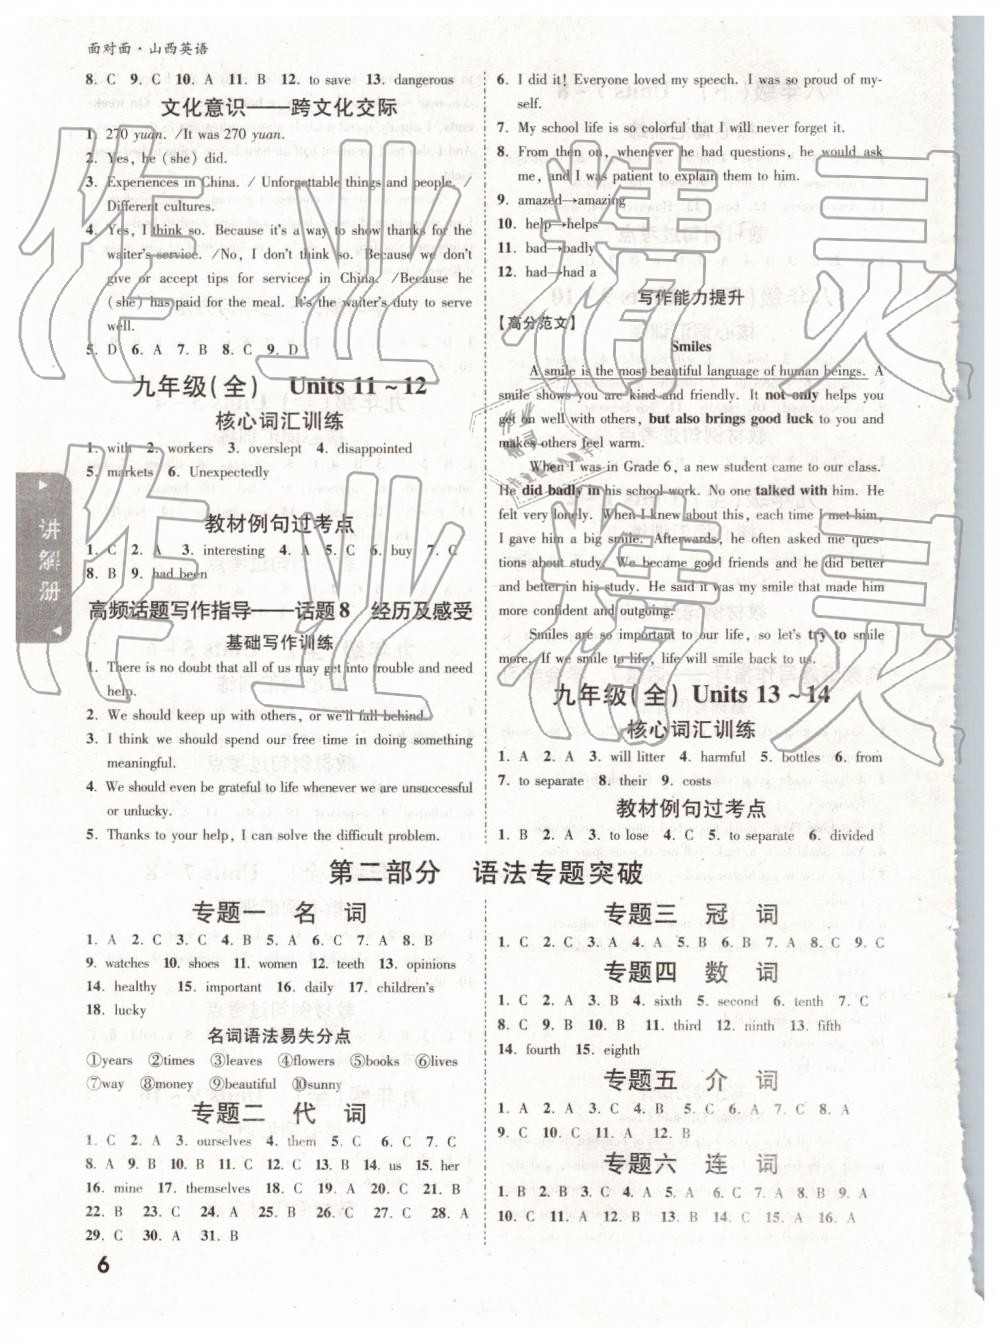 面对面·山西英语
8. C 9. C 10. A 11. B 12. to save 13. dangerous
文化意识——跨文化交际
1. 270 yuan. /It was 270 yuan.
2. Yes, he (she) did.
3. Experiences in China. / Unforgettable things and people. /
Different cultures.
4. Yes, I think so. Because it's a way to show thanks for the
waiter's service. /No, I don't think so. Because we don't
give or accept tips for services in China. /Because he
(she) has paid for the meal. It's the waiter's duty to serve
well.
5. D 6. A 7. B 8. C 9. D
九年级(全) Units 11～12
核心词汇训练
1. with 2. workers 3. overslept 4. disappointed
5. markets 6. Unexpectedly
教材例句过考点
1. C 2. A 3. interesting 4. A 5. C 6. buy 7. C
8. B 9. had been
高频话题写作指导——话题8 经历及感受
基础写作训练
1. There is no doubt that all of us may get into trouble and need
help.
2. We should keep up with others, or we'll fall behind.
3. I think we should spend our free time in doing something
meaningful.
4. We should even be grateful to life whenever we are unsuccessful
or unlucky.
5. Thanks to your help, I can solve the difficult problem.
6. I did it! Everyone loved my speech. I was so proud of my-
self.
7. My school life is so colorful that I will never forget it.
8. From then on, whenever he had questions, he would ask
me, and I was patient to explain them to him.
9. amazed→amazing
10. help→helps
11. bad→badly
12. had→had a
写作能力提升
【高分范文】
Smiles
A smile is the most beautiful language of human beings. A
smile shows you are kind and friendly. It not only helps you
get on well with others, but also brings good luck to you and
makes others feel warm.
When I was in Grade 6, a new student came to our class.
He did badly in his school work. No one talked with him. He
felt very lonely. When I knew about this, each time I met him,
I gave him a big smile. Afterwards, he often asked me ques-
tions about study. We became good friends and he did better
and better in his study. He said it was my smile that made him
more confident and outgoing.
Smiles are so important to our life, so let's try to smile
more. If we smile to life, life will smile back to us.
九年级(全) Units 13～14
核心词汇训练
1. A 2. A 3. will litter 4. harmful 5. bottles 6. from
7. to separate 8. their 9. costs
教材例句过考点
1. B 2. A 3. to lose 4. C 5. to separate 6. divided
第二部分 语法专题突破
专题一 名 词
1. A 2. C 3. C 4. B 5. A 6. C 7. A 8. B
9. watches 10. shoes 11. women 12. teeth 13. opinions
14. healthy 15. important 16. daily 17. children's
18. lucky
名词语法易失分点
①years ②times ③leaves ④flowers ⑤books ⑥lives
⑦way ⑧money ⑨beautiful ⑩sunny
专题二 代 词
1. C 2. A 3. ourselves 4. them 5. C 6. C 7. C
8. A 9. B 10. B 11. C 12. C 13. B 14. us 15. her
16. mine 17. themselves 18. C 19. B 20. A 21. C
22. B 23. B 24. C 25. A 26. C 27. C 28. A
29. C 30. A 31. B
专题三 冠 词
1. C 2. C 3. A 4. A 5. B 6. B 7. A 8. C 9. C
专题四 数 词
1. C 2. A 3. B 4. sixth 5. second 6. tenth 7. C
8. C 9. B 10. B 11. third 12. ninth 13. fifth
14. fourth 15. eighth
专题五 介 词
1. A 2. A 3. C 4. B 5. C 6. A 7. C 8. A
9. C 10. C 11. A 12. B
专题六 连 词
1. B 2. B 3. C 4. A 5. A 6. C 7. A 8. B 9. A
10. C 11. A 12. B 13. B 14. C 15. A 16. A
讲解册
6
作业精灵
作业精灵